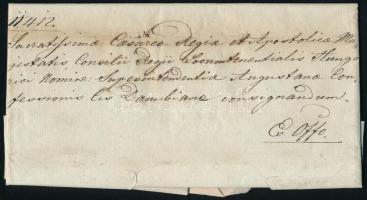 11412.
Sacratissimae Caesareo Regiae et Apostolicae Ma-
jestatis Consilii Regii Locumtenentialis Hunga-
rici Nomine: Superintendentiae Augustanae Con-
fessionis Cis Danubianae consignandum.
E Offo.